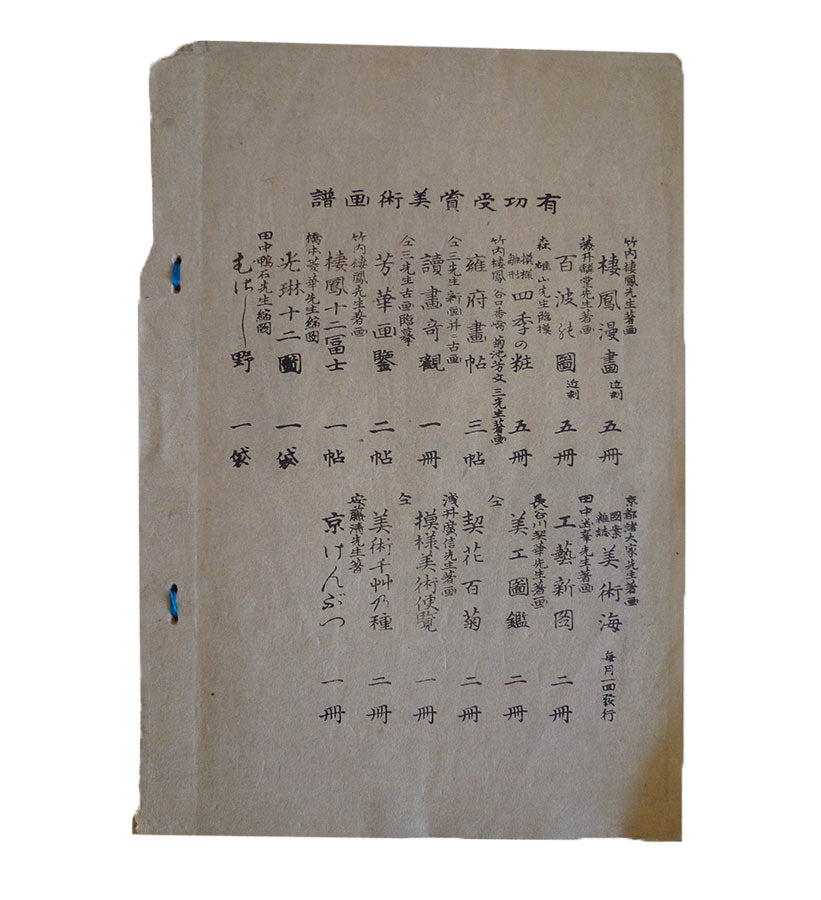 有功受賞美術画譜
竹内棲鳳先生著画
棲鳳漫畫 近刻 五冊
藤井麟堂先生著画
百波能圖 近刻 五冊
森雄山先生臨模
模様雛形 四季の粧 五冊
竹内棲鳳 谷口香嶠 菊池芳文 三先生著画
雍府畫帖 三帖
仝三先生新画并ニ古画
讀畫奇觀 一冊
仝三先生古画臨摹
芳華画鑒 二帖
竹内棲鳳先生著画
棲鳳十二冨士 一帖
橋本菱華先生縮図
光琳十二圖 一袋
田中鴨石先生縮図
むさし野 一袋
京都諸大家先生著画
図案雑誌 美術海 毎月一回發行
田中 先生著画
工藝新図 二冊
長谷川契華先生著画
美工圖鑑 二冊
仝
契花百菊 二冊
浅井廣信先生著画
模様美術便覧 一冊
仝
美術千艸乃種 二冊
安藤 先生著
京けんぶつ 一冊